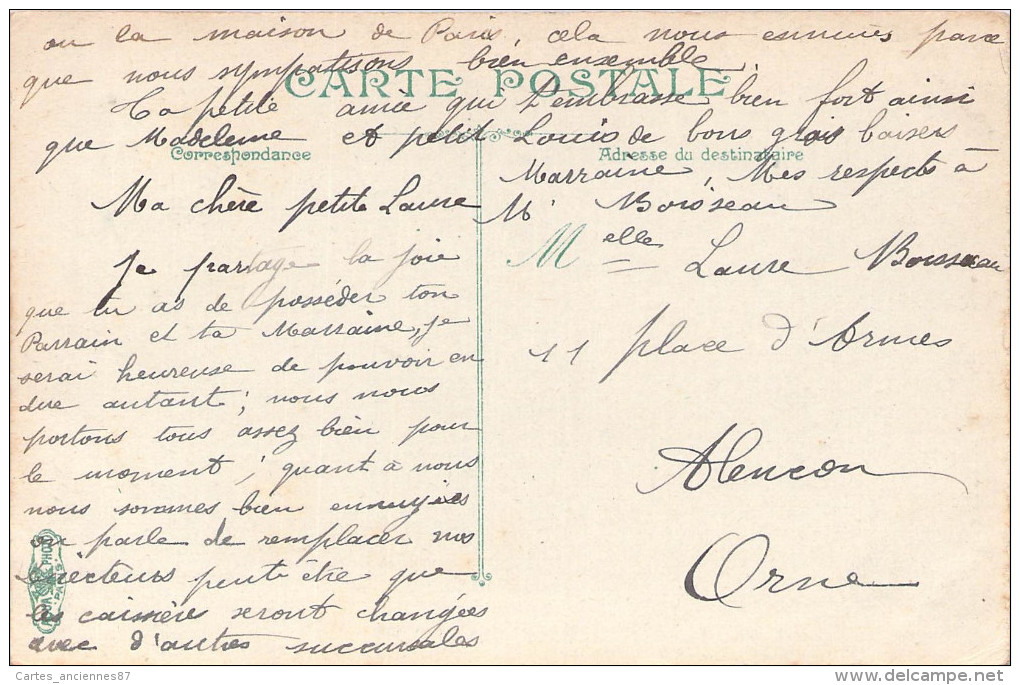 ou la maison de Paris, cela nous ennuies parce
que nous sympatisons bien ensemble,
CARTE POSTALE
Ta petite amie qui t'embrasse bien fort ainsi
que Madeleine et petit Louis de bons gros baisers
Correspondance
Adresse du destinataire
Marraine, Mes respects à
Mr Boisseau
Ma chère petite Laure
Je partage la joie
que tu as de posséder ton
Parrain et ta Marraine, je
serai heureuse de pouvoir en
dire autant; nous nous
portons tous assez bien pour
le moment; quant à nous
nous sommes bien ennuyées
on parle de remplacer nos
Directeurs peut être que
les caissière seront changées
avec d'autres succursales
Melle Laure Boisseau
11 place d'Armes
Alencon
Orne
AQUA PHOTO
PARIS
Cartes_anciennes87
www.delcampe.net